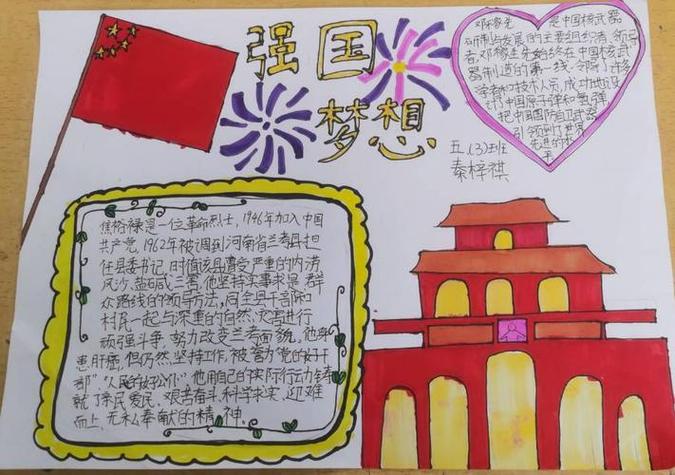 强国
梦想
邓稼先 是中国核武器
研制与发展的主要组织者,领导
者,邓稼先始终在中国核武
器制造的第一线,领导了许多
学者和技术人员,成功地设
计了中国原子弹和氢弹,
把中国国防自卫武器
引领到了世界
先进的水
平
五.(3)班
秦梓祺
焦裕禄是一位革命烈士,1946年加入中国
共产党,1962年被调到河南省兰考县担
任县委书记,时值该县遭受严重的内涝,
风沙,盐碱三害,他坚持实事求是 群
众路线的领导方法,同全县干部和
村民一起与深重的自然灾害进行
顽强斗争,努力改变兰考面貌,他身
患肝癌,但仍然坚持工作,被誉为"党的好干
部","人民的好公仆"他用自己的实际行动铸
就了亲民爱民,艰苦奋斗,科学求实,迎难
而上,无私奉献的精神